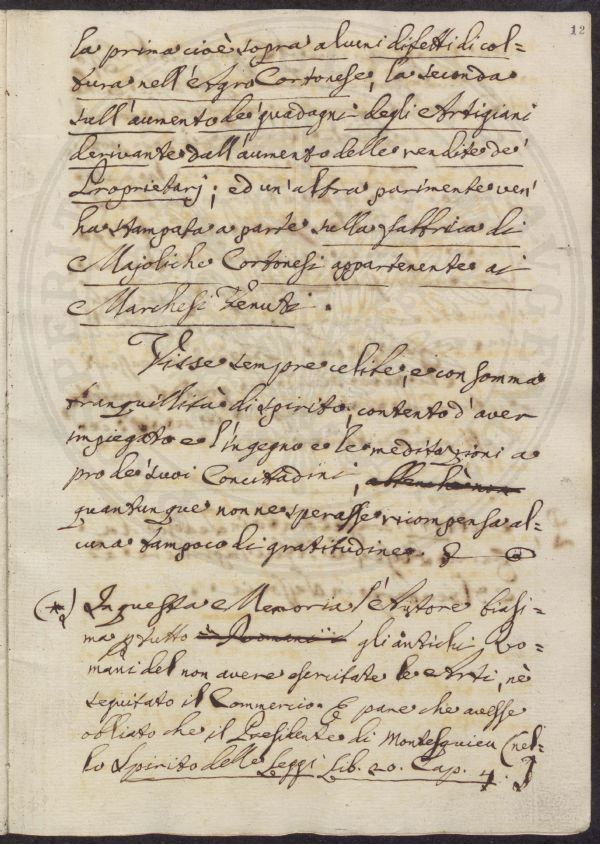 12
la prima cioè sopra alcuni difetti di col=
tura nell'Agro Cortonese, la seconda
sull'aumento de' guadagni degli Artigiani
derivante dall'aumento delle rendite de'
Proprietarj; ed un'altra parimente ven'
ha stampata a parte sulla fabbrica di
Majoliche Cortonesi appartenente ai
Marchesi Venuti.
Visse sempre celibe, e con somma
tranquillità di spirito, contento d'aver
impiegato e l'ingegno e le meditazioni a
pro de' suoi Concittadini,
quantunque non ne sperasse ricompensa al=
cuna tampoco di gratitudine.
(*) In questa Memoria l'Autore biasi=
ma tutto gli antichi Ro=
mani del non avere esercitate le Arti, nè
seguitato il Commercio. E pare che avesse
obliato che il Presidente di Montesquieu (nel=
lo Spirito delle Leggi Lib. 20. Cap. 4.